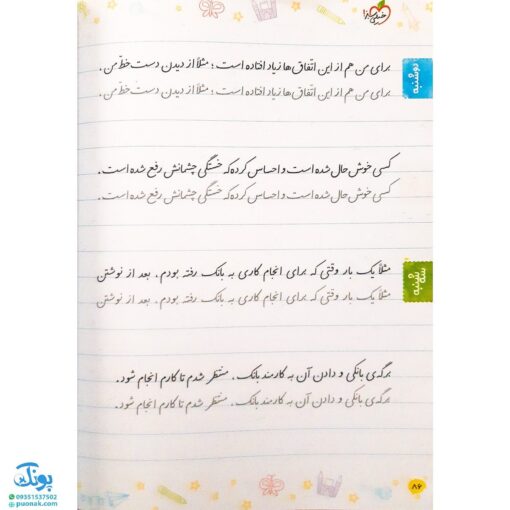 خیلی سبز
دوشنبه
برای من هم از این اتّفاق‌ها زیاد افتاده است؛ مثلاً از دیدن دست خطّ من،
برای من هم از این اتّفاق‌ها زیاد افتاده است؛ مثلاً از دیدن دست خطّ من،
کسی خوش حال شده است و احساس کرده که خستگی چشمانش رفع شده است.
کسی خوش حال شده است و احساس کرده که خستگی چشمانش رفع شده است.
سه شنبه
مثلاً یک بار وقتی که برای انجام کاری به بانک رفته بودم، بعد از نوشتن
مثلاً یک بار وقتی که برای انجام کاری به بانک رفته بودم، بعد از نوشتن
برگه‌ی بانکی و دادن آن به کارمند بانک، منتظر شدم تا کارم انجام شود.
برگه‌ی بانکی و دادن آن به کارمند بانک، منتظر شدم تا کارم انجام شود.
۸۶
پونک
09351537502
puonak.com